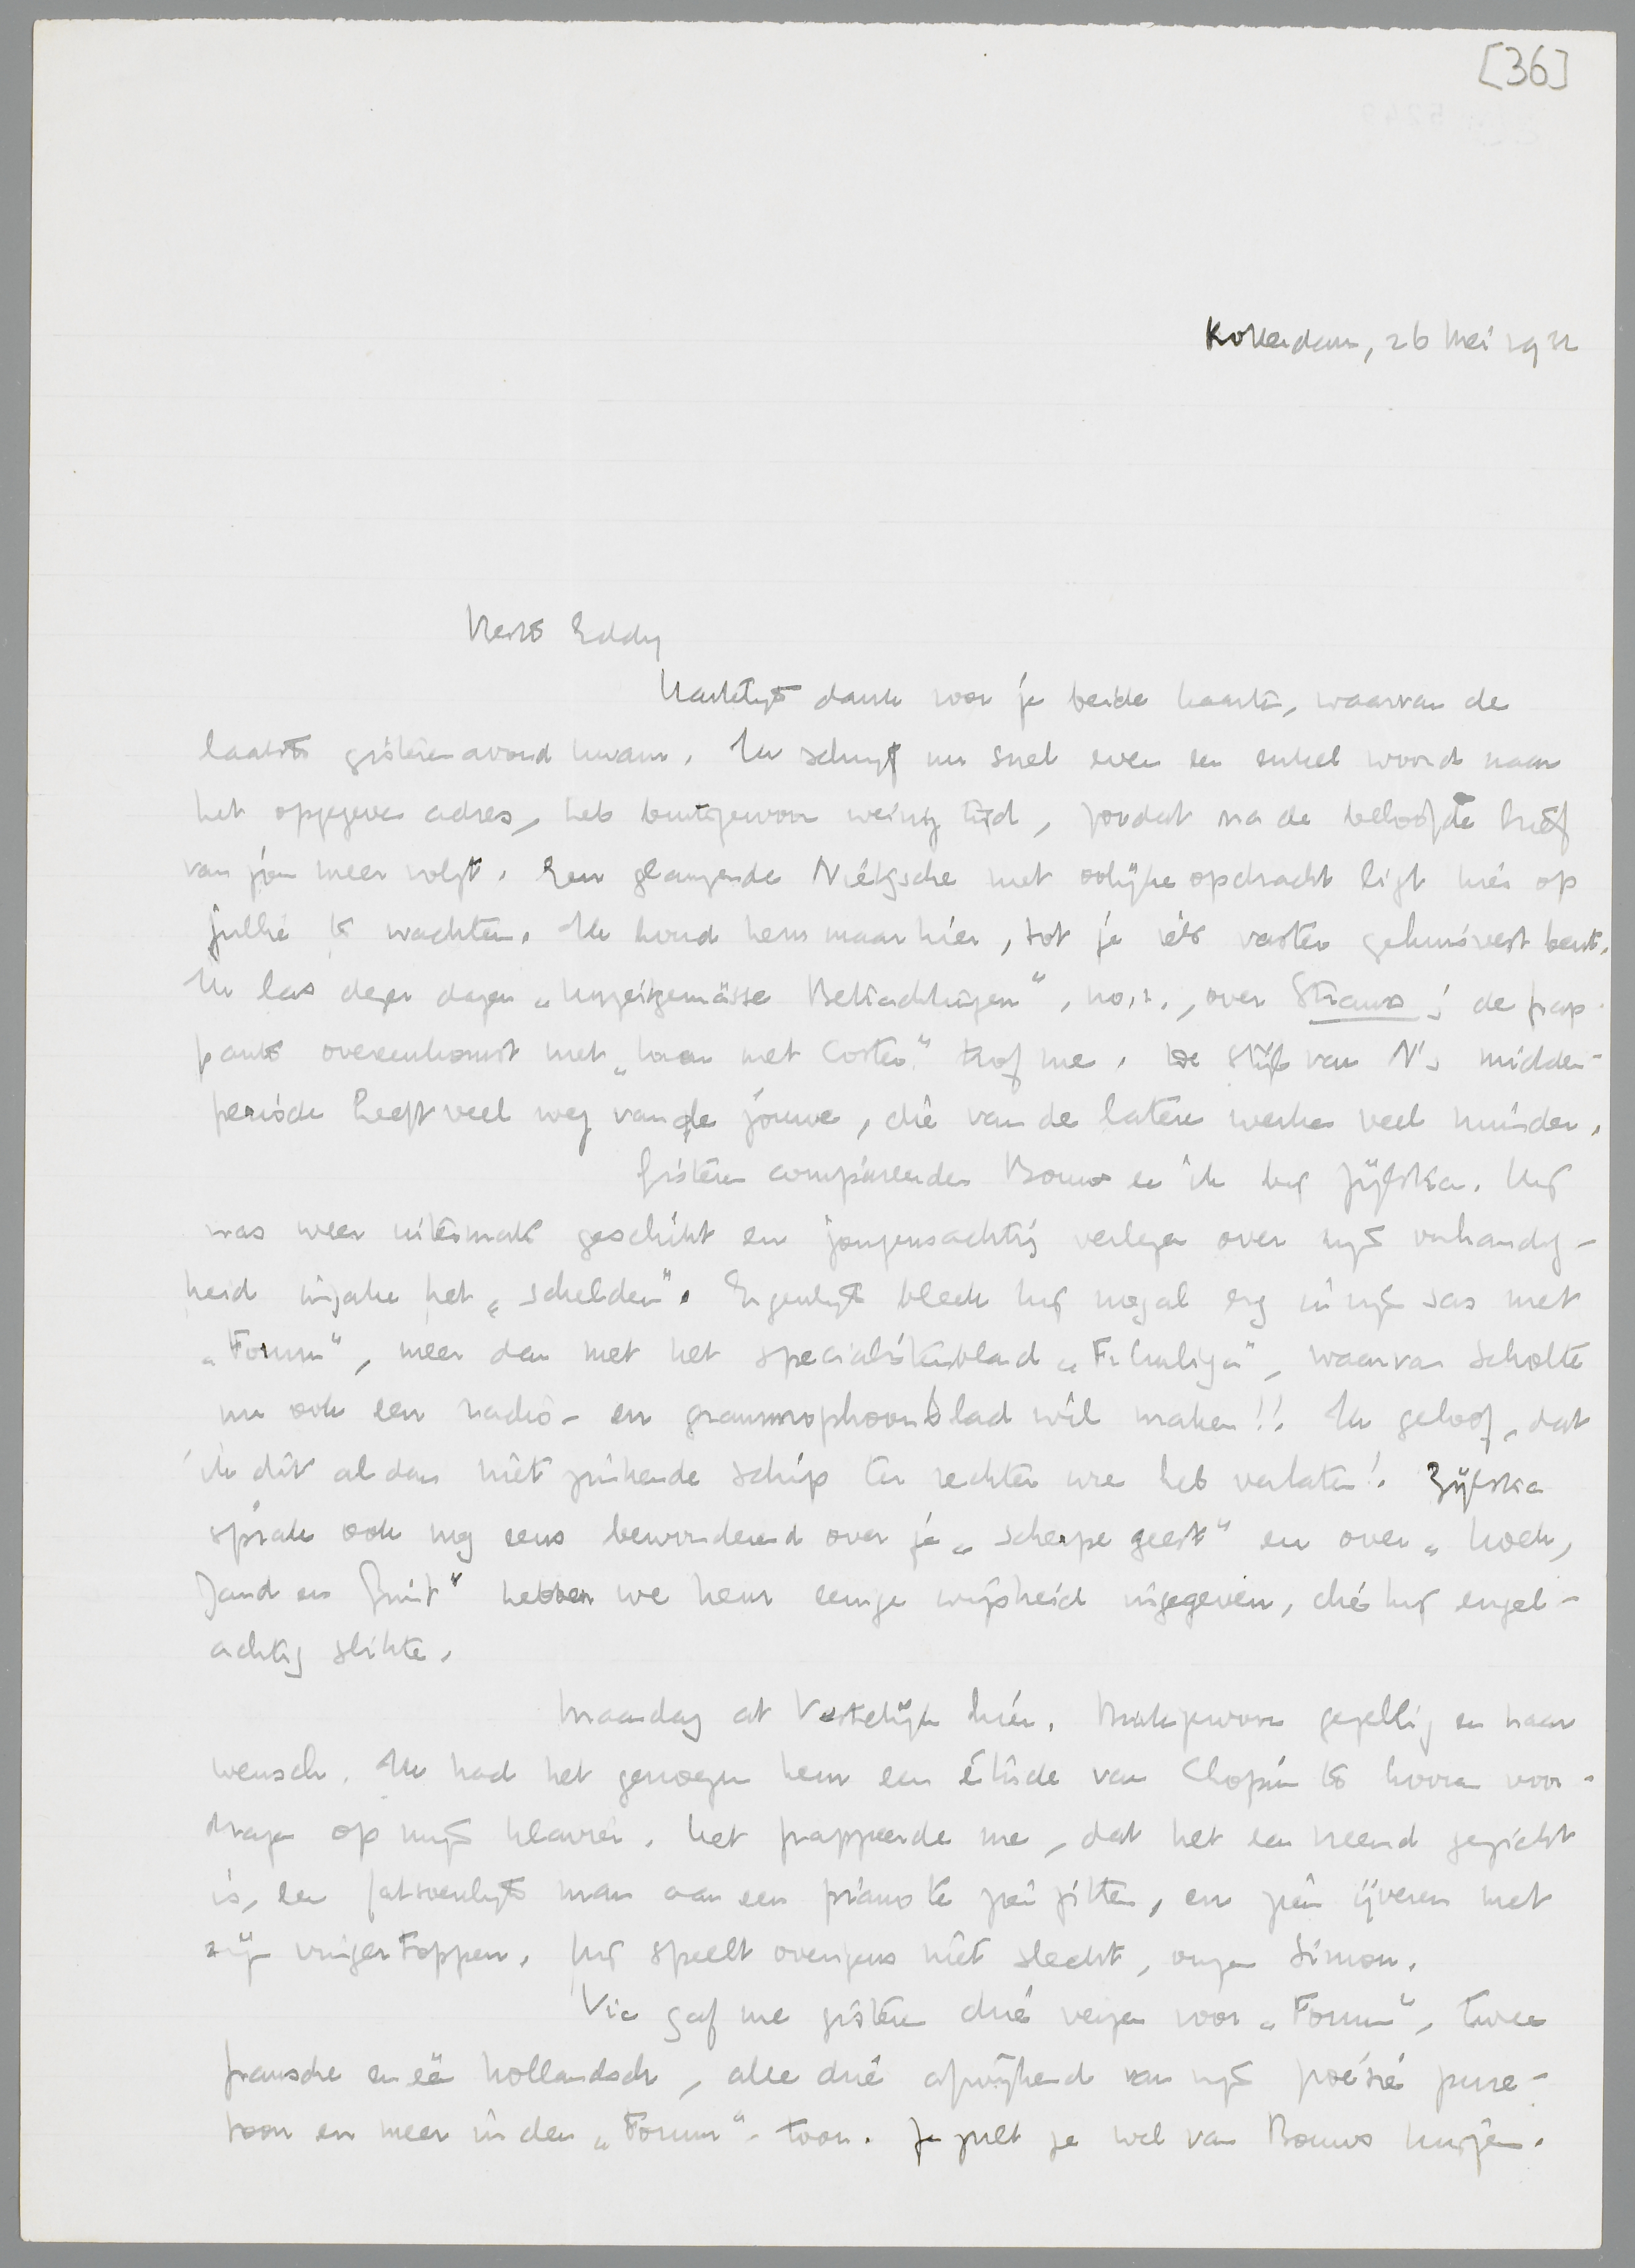 [36]
Rotterdam, 26 Mei 1932
Beste Eddy
Hartelijk dank voor je beide kaarten, waarvan de
laatste gisterenavond kwam. Ik schrijf nu snel even een enkel woord naar
het opgegeven adres, heb buitengewoon weinig tijd, zoodat na de beloofde brief
van jou meer volgt. Een glanzende Nietzsche met oolijke opdracht ligt hier op
jullie te wachten. Ik houd hem maar hier, tot je iets vaster gehuisvest bent.
Ik las dezer dagen „Unzeitgemässe Betrachtungen", no. 1, over Strauss; de frap-
pante overeenkomst met „Uren met Coster" trof me. De stijl van N's midden-
periode heeft veel weg van de jouwe, die van de latere werken veel minder.
Gisteren compareerden Bouws en ik bij Zijlstra. Hij
was weer uitermate geschikt en jongensachtig verlegen over zijn onhandig-
heid inzake het „schelden". Eigenlijk bleek hij nogal erg in zijn sas met
„Forum", meer dan met het specialistenblad „Filmliga", waarvan Scholte
nu ook een radio- en grammophoonblad wil maken!! Ik geloof, dat
ik dit al dan niet zinkende schip ter rechter ure heb verlaten! Zijlstra
sprak ook nog eens bewonderend over je „scherpe geest" en over „Kroeh,
Zand en Gruit" hebben we hem eenige wijsheid ingegeven, die hij engel-
achtig slikte.
Maandag at Vestdijk hier. Buitengewoon gezellig en naar
wensch. Ik had het genoegen hem een étude van Chopin te hooren voor-
dragen op mijn klavier. Het frappeerde me, dat het een vreemd gezicht
is, een fatsoenlijk man aan een piano te zien zitten, en zien ijveren met
zijn vingertoppen. Hij speelt overigens niet slecht, onze Simon.
Vic gaf me gisteren drie verzen voor „Forum", twee
fransche en één hollandsch, alle drie afwijkend van zijn poésie pure-
toon en meer in den „Forum"-toon. Je zult ze wel van Bouws krijgen.